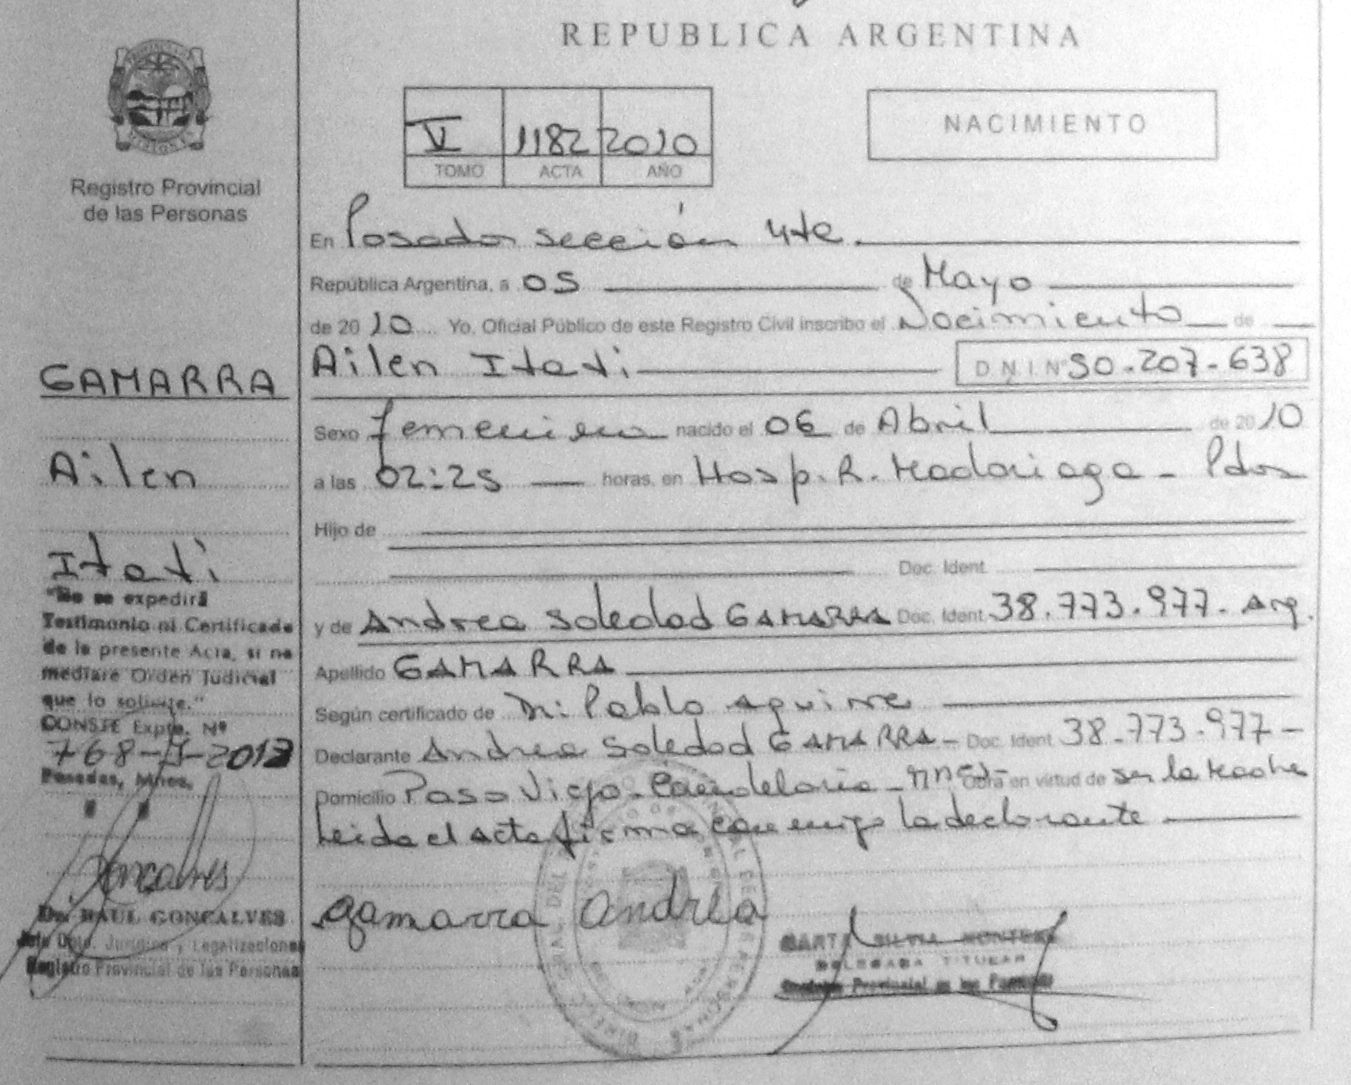 REPUBLICA ARGENTINA
Registro Provincial
de las Personas
V 1182 2010
TOMO ACTA AÑO
NACIMIENTO
En Posadas sección 4te.
República Argentina, a 05 de Mayo
de 2010 Yo, Oficial Público de este Registro Civil inscribo el Nacimiento de
Ailen Itati D.N.I. Nº 50.207.638
Sexo femenino nacido el 06 de Abril de 2010
a las 02:25 horas, en Hosp. R. Madariaga - Pdas
Hijo de
Doc. Ident.
y de Andrea Soledad GAMARRA Doc. Ident. 38.773.977- Arg.
Apellido GAMARRA
Según certificado de Dr: Pablo Aguirre
Declarante Andrea Soledad GAMARRA- Doc. Ident. 38.773.977-
Domicilio Paso Viejo- Candelaria - Mnes- Obra en virtud de ser la Madre
Leida el acta firma conmigo la declarante
gamarra andrea
MARTA SILVIA
DELEGADA TITULAR
Registro Provincial de las Personas
GAMARRA
Ailen
Itati
"No se expedirá
Testimonio ni Certificado
de la presente Acta, si no
mediare Orden Judicial
que lo solicite."
CONSTE Expte. Nº
768-A-2013
Posadas, Mnes,
Dr. RAUL GONCALVES
Jefe Dpto. Jurídico y Legalizaciones
Registro Provincial de las Personas